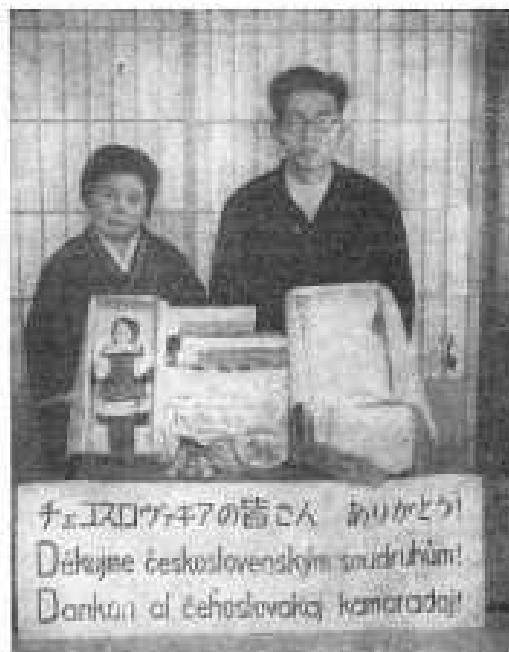 チェコスロヴァキアの皆さん ありがとう!
Děkujme československým soudruhům!
Dankon al ĉehoslovakaj kamaradoj!